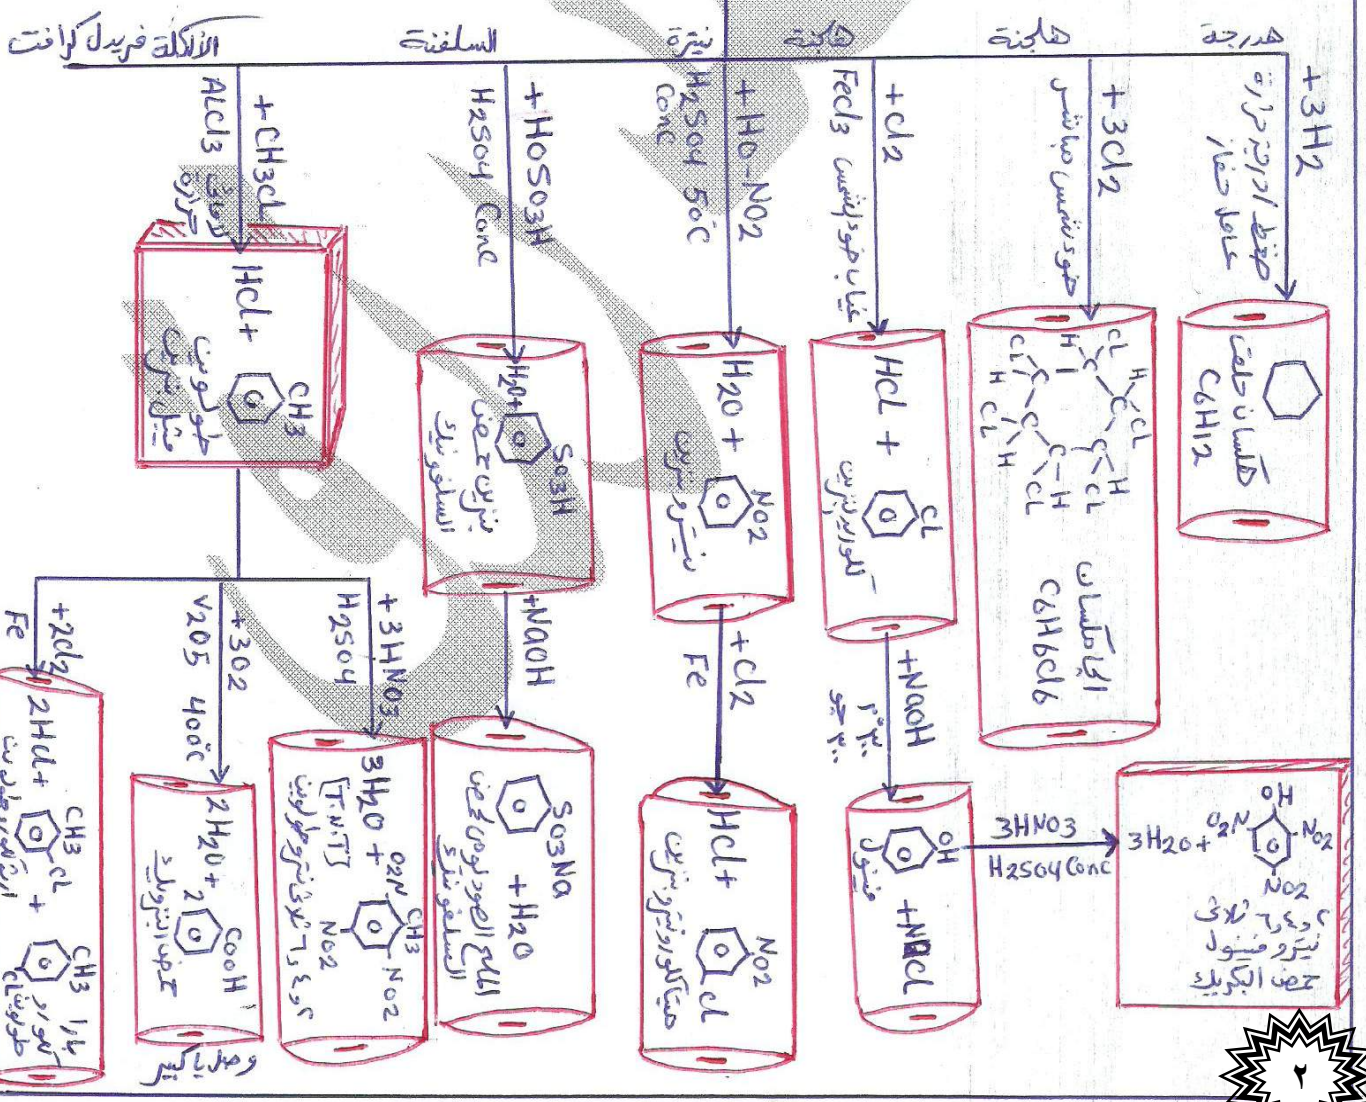 هدرجة
هلجنة
هلجنة
نيترة
السلفنة
الألكلة فريدل كرافت
+3H2
ضغط / درجة حرارة
عامل حفاز
هكسان حلقى
C6H12
+3Cl2
ضوء شمس مباشر
CL
H
C
H
CL
C
C
H
CL
H
CL
C
C
H
CL
C
H
CL
الجامكسان
C6H6Cl6
+Cl2
FeCl3 غياب ضوء الشمس
HCL +
CL
كلورو بنزين
+NaOH
٣٠٠°م
٣٠٠ جو
OH
+NaCl
فينول
3HNO3
H2SO4 Conc
3H2O +
OH
O2N
NO2
NO2
٢و٤و٦ ثلاثى
نيترو فينول
حمض البكريك
+HO-NO2
H2SO4 50°C
Conc
H2O +
NO2
نيترو بنزين
+Cl2
Fe
HCl +
NO2
Cl
ميتا كلورو نيترو بنزين
+HOSO3H
H2SO4 Conc
H2O+
SO3H
بنزين حمض
السلفونيك
+NaOH
SO3Na
+H2O
الملح الصوديومى لحمض
السلفونيك
+CH3Cl
ALCl3
حرارة
HCl +
CH3
طولوين
ميثيل بنزين
+3HNO3
H2SO4
3H2O +
[T.N.T]
O2N
CH3
NO2
NO2
٢و٤و٦ ثلاثى نيترو طولوين
+3O2
V2O5 400°C
2H2O + 2
COOH
حمض البنزويك
+2Cl2
Fe
2HCl +
CH3
CL
+
CH3
بارا
كلورو
طولوين
وصل يا كبير
٢